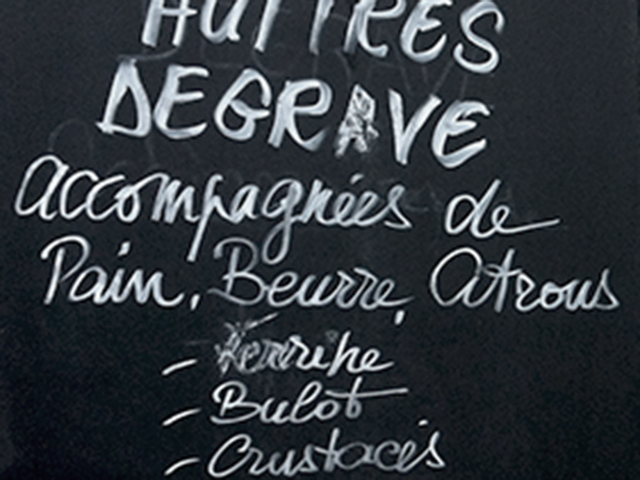 HUITRES
DEGRAVE
accompagnées de
Pain, Beurre, Citrons
- Bulot
- Crustacés